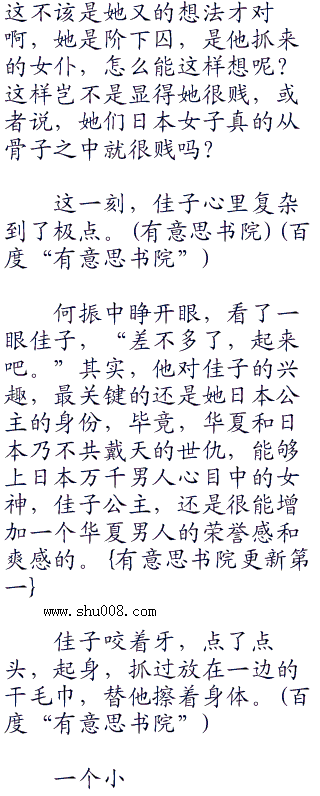 这不该是她又的想法才对
啊，她是阶下囚，是他抓来
的女仆，怎么能这样想呢？
这样岂不是显得她很贱，或
者说，她们日本女子真的从
骨子之中就很贱吗？
这一刻，佳子心里复杂
到了极点。(有意思书院)(百
度“有意思书院”)
何振中睁开眼，看了一
眼佳子，“差不多了，起来
吧。”其实，他对佳子的兴
趣，最关键的还是她日本公
主的身份，毕竟，华夏和日
本乃不共戴天的世仇，能够
上日本万千男人心目中的女
神，佳子公主，还是很能增
加一个华夏男人的荣誉感和
爽感的。{有意思书院更新第
一}
www.shu008.com
佳子咬着牙，点了点
头，起身，抓过放在一边的
干毛巾，替他擦着身体。(百
度“有意思书院”)
一个小